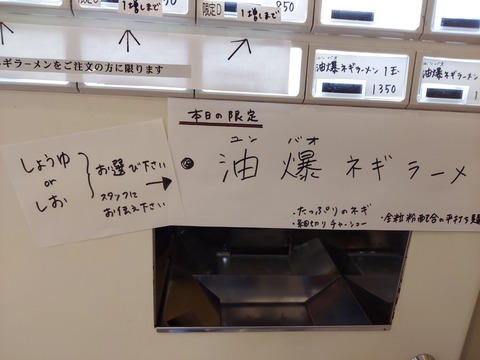 限定D
1増しまで
850
1増しまで
850
ネギラーメンをご注文の方に限ります
油爆ネギラーメン 1玉
1350
油爆ネギラーメン
本日の限定
ユン バオ
◎ 油爆ネギラーメ
しょうゆ
or
しお
お選び下さい
スタッフに
お伝え下さい
・たっぷりのネギ
・細切りチャーシュー
・全粒粉配合の平打ち